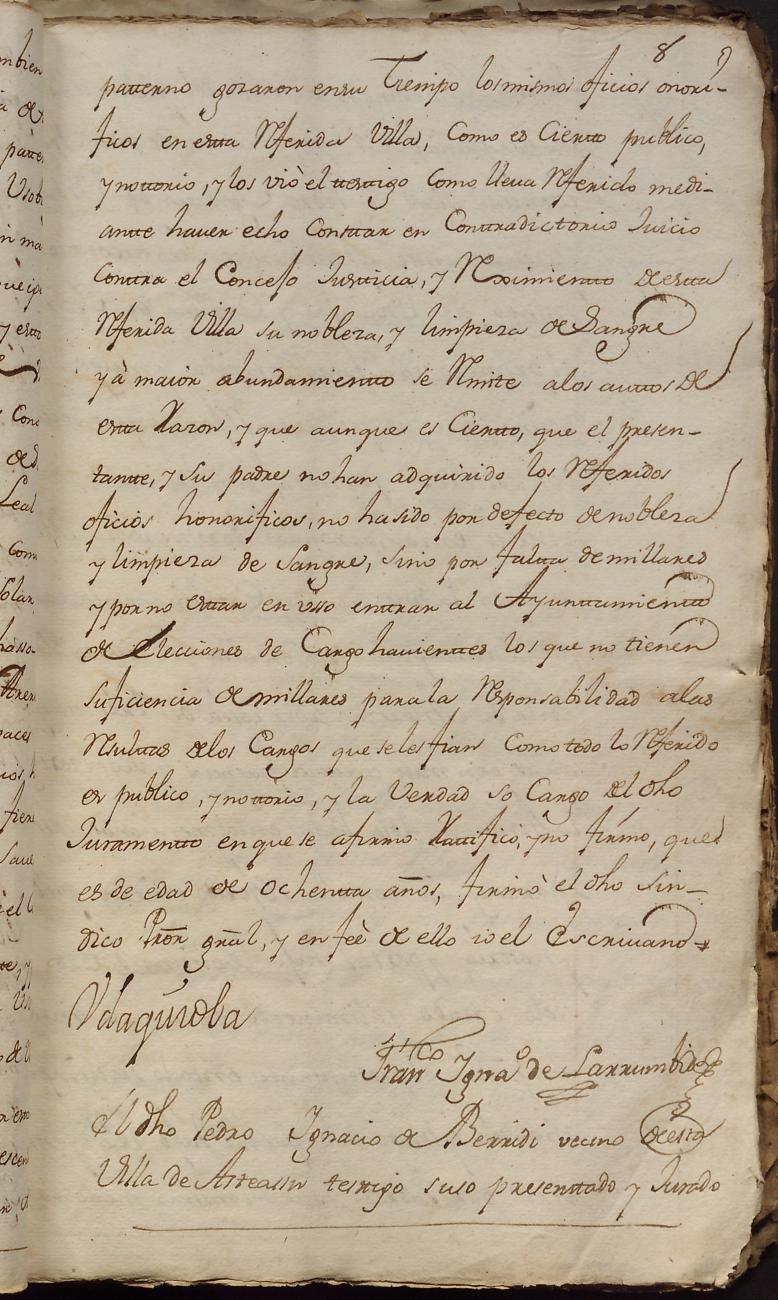 8
patterno gozaron en su Tiempo los mismos oficios onori-
ficos en estta Rferida Villa, Como es Cientto publico,
y nottorio, y los viò el testtigo como lleua Rferido medi-
antte hauer echo Consttar en Conttradictorio Juicio
Conttra el Concejo Justticia, y Reximientto de estta
Rferida Villa su nobleza, y limpieza de Sangre
y à maior abundamientto se Rmite a los auttos de
estta Razon, y que aunque es Cientto, que el presen-
tantte, y su padre no han adquirido los Rferidos
oficios honorificos, no ha sido por defecto de nobleza
y limpieza de Sangre, sino por faltta de millares
y por no esttar en vsso enttrar al Ayunttamientto
de Elecciones de Cargohauienttes los que no tienen
suficiencia de millares para la Responsabilidad a las
Rsulttas de los Cargos que se les fian Como todo lo Rferido
es publico, y nottorio, y la Verdad so Cargo del dho
Juramentto en que se afirmo Rattifico, y no firmo, que
es de edad de ochentta años, firmò el dho Sin-
dico Pror gral, y en feè de ello io el Escriuano
Vdaquiola
Franco Ignao de Larrumbide
El dho Pedro Ignacio de Berridi vecino de esta
Villa de Asteassu testigo suso presenttado y Jurado